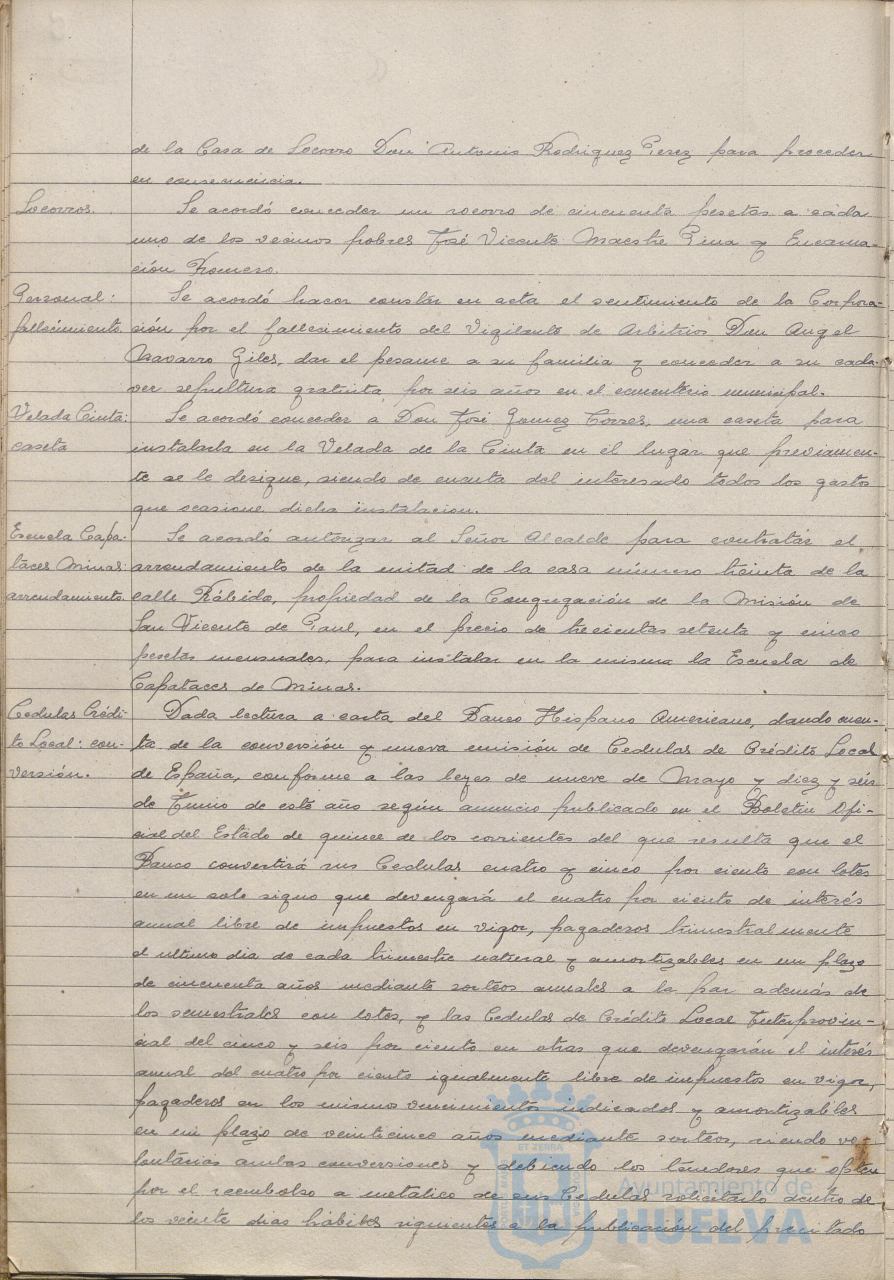 de la Casa de Socorro Don Antonio Rodriguez Perez para proceder
en consecuencia.
Socorros.
Se acordó conceder un socorro de cincuenta pesetas a cada
uno de los vecinos pobres José Vicente Maestre Pina y Encarna-
ción Romero.
Personal:
fallecimiento.
Se acordó hacer constar en acta el sentimiento de la Corpora-
sión por el fallecimiento del Vigilante de Arbitrios Don Angel
Navarro Giles, dar el pesame a su familia y conceder a su cada-
ver sepultura gratuita por seis años en el cementerio municipal.
Velada Cinta:
caseta
Se acordó conceder a Don José Gomez Torres, una caseta para
instalarla en la Velada de la Cinta en el lugar que previamen-
te se le designe, siendo de cuenta del interesado todos los gastos
que ocasione dicha instalacion.
Escuela Capa-
taces Minas:
arrendamiento.
Se acordó autorizar al Señor Alcalde para contratar el
arrendamiento de la mitad de la casa número treinta de la
calle Rábida, propiedad de la Congregación de la Misión de
San Vicente de Paul, en el precio de trecientas setenta y cinco
pesetas mensuales, para instalar en la misma la Escuela de
Capataces de Minas.
Cedulas Crédi-
to Local: con-
versión.
Dada lectura a carta del Banco Hispano Americano, dando cuen-
ta de la conversión y nueva emisión de Cedulas de Crédito Local
de España, conforme a las leyes de nueve de Mayo y diez y seis
de Junio de este año según anuncio publicado en el Boletin Ofi-
cial del Estado de quince de los corrientes del que resulta que el
Banco convertirá sus Cedulas cuatro y cinco por ciento con lotes
en un solo signo que devengará el cuatro por ciento de interés
anual libre de impuestos en vigor, pagaderos trimestralmente
el ultimo dia de cada trimestre natural y amortizables en un plazo
de cincuenta años mediante sorteos anuales a la par además de
los semestrales con lotes, y las Cedulas de Crédito Local Interprovin-
cial del cinco y seis por ciento en otras que devengarán el interés
anual del cuatro por ciento igualmente libre de impuestos en vigor,
pagaderos en los mismos vencimientos indicados y amortizables
en un plazo de veinticinco años mediante sorteos, siendo vo-
luntarias ambas conversiones y debiendo los tenedores que opten
por el reembolso a metalico de sus Cedulas solicitarlo dentro de
los veinte dias hábiles siguientes a la publicación del precitado
Ayuntamiento de
HUELVA